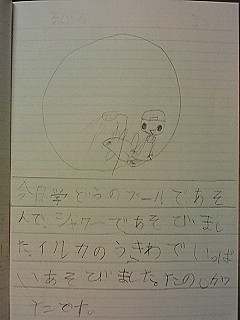 今日学どうのプールであそ
んで、シャワーであそびまし
た。イルカのうきわでいっぱ
いあそびました。たのしかっ
たです。